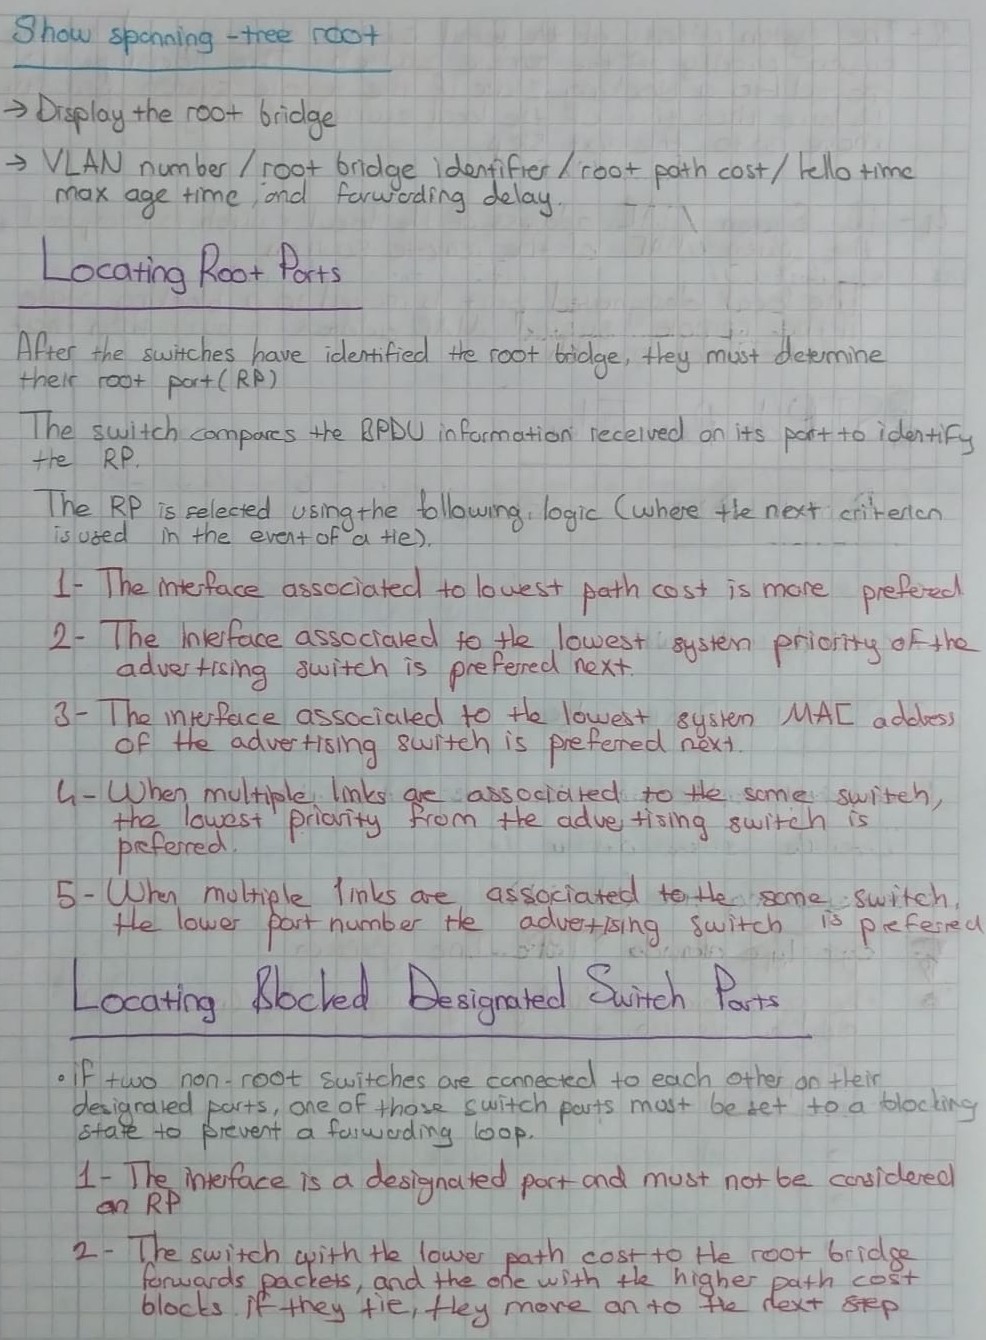 Show spanning-tree root
→ Display the root bridge
→ VLAN number / root bridge identifier / root path cost / hello time
max age time, and forwading delay.
Locating Root Ports
After the switches have identified the root bridge, they must determine
their root port (RP)
The switch compares the BPDU information received on its port to identify
the RP.
The RP is selected using the following logic (where the next criterion
is used in the event of a tie).
1- The interface associated to lowest path cost is more prefered
2- The interface associated to the lowest system priority of the
advertising switch is preferred next.
3- The interface associated to the lowest system MAC address
of the advertising switch is preferred next.
4- When multiple links are associated to the same switch,
the lowest priority from the advertising switch is
preferred.
5- When multiple links are associated to the same switch,
the lower port number the advertising switch is prefered
Locating Blocked Designated Switch Ports
• if two non-root switches are connected to each other on their
designated ports, one of those switch ports must be set to a blocking
state to prevent a forwading loop.
1- The interface is a designated port and must not be considered
an RP
2- The switch with the lower path cost to the root bridge
forwards packets, and the one with the higher path cost
blocks. if they tie, they move on to the next step